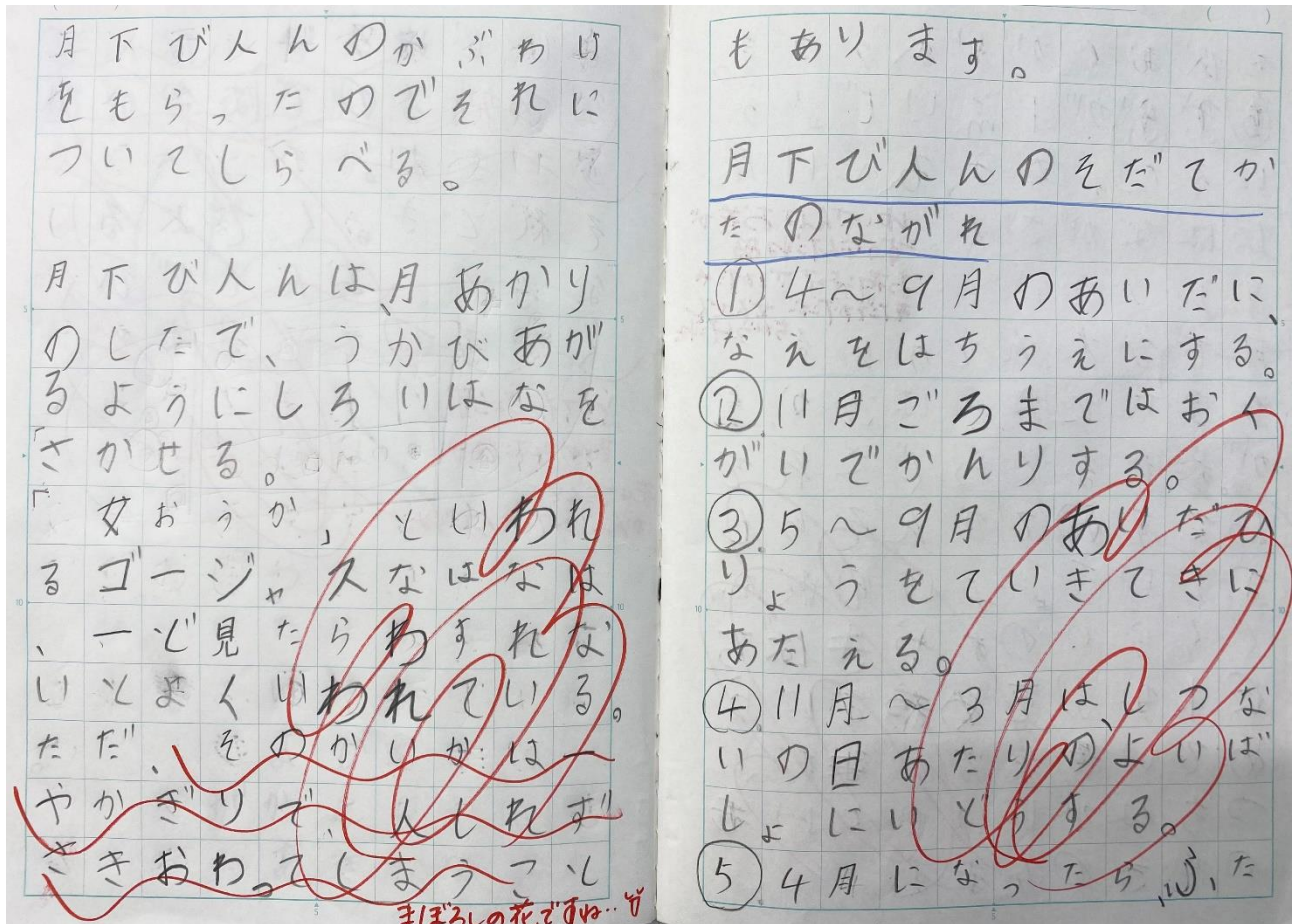 月下び人んのかぶわけ
をもらったのでそれに
ついてしらべる。
月下び人んは、月あかり
のしたで、うかびあが
るようにしろいはなを
さかせる。
「女おうか」といわれ
るゴージャスなはなは
、一ど見たらわすれな
いとよくいわれている。
ただ、そのかいかは一
やかぎりで、人しれず
さきおわってしまうこと
まぼろしの花ですね…
もあります。
月下び人んのそだてか
たのながれ
① 4〜9月のあいだに、
なえをはちうえにする。
② 11月ごろまではおく
がいでかんりする。
③ 5〜9月のあいだひ
りょうをていきてきに
あたえる。
④ 11月〜3月は、しつな
いの日あたりのよいば
しょにいどうする。
⑤ 4月になったら、ふた